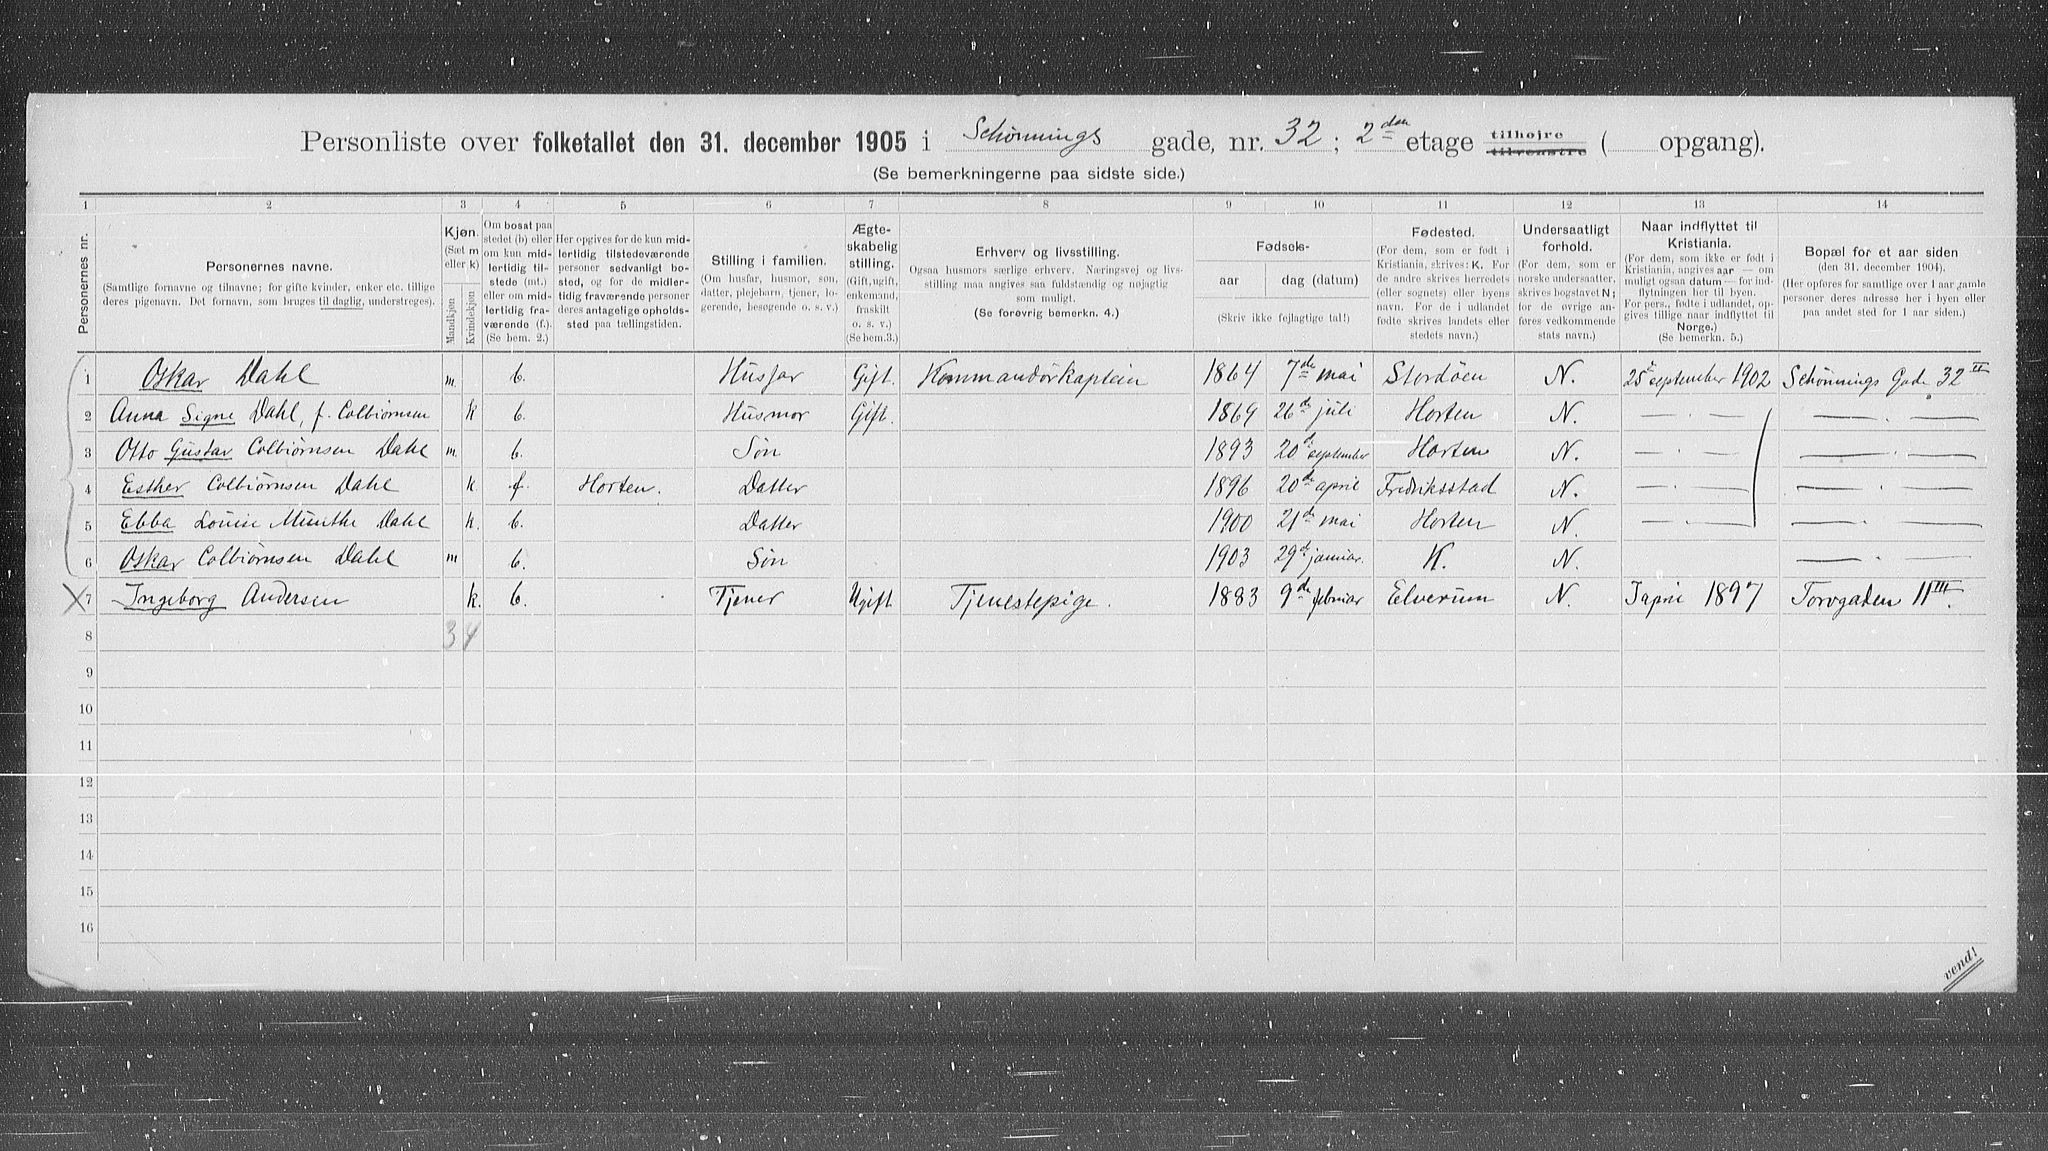 Personliste over folketallet den 31. december 1905 i Schønnings gade, nr. 32; 2den etage tilhøjre tilvenstre ( opgang).
(Se bemerkningerne paa sidste side.)
1 2 3 4 5 6 7 8 9 10 11 12 13 14
Personernes nr.
Personernes navne.
(Samtlige fornavne og tilnavne; for gifte kvinder, enker etc. tillige
deres pigenavn. Det fornavn, som bruges til daglig, understreges).
Kjøn.
(Sæt m
eller k)
Mandkjøn
Kvindekjøn
Om bosat paa
stedet (b) eller
om kun mid-
lertidig til-
stede (mt.)
eller om mid-
lertidig fra-
værende (f.).
(Se bem. 2.)
Her opgives for de kun mid-
lertidig tilstedeværende
personer sedvanlig bo-
sted, og for de midler-
tidig fraværende personer
deres antagelige opholds-
sted paa tællingstiden.
Stilling i familien.
(Om husfar, husmor, søn,
datter, plejebarn, tjener, lo-
gerende, besøgende o. s. v.)
Ægte-
skabelig
stilling.
(Gift, ugift,
enkemand,
fraskilt
o. s. v.)
(Se bem.3.)
Erhverv og livsstilling.
Ogsaa husmors særlige erhverv. Næringsvej og livs-
stilling maa angives saa fuldstændig og nøjagtig
som muligt.
(Se forøvrig bemerkn. 4.)
Fødsels-
aar dag (datum)
(Skriv ikke fejlagtige tal!)
Fødested.
(For dem, som er født i
Kristiania, skrives: K. For
de andre skrives herredets
(eller sognets) eller byens
navn. For de i udlandet
fødte skrives landets eller
stedets navn.)
Undersaatligt
forhold.
(For dem, som er
norske undersaatter,
skrives bogstavet N;
for de øvrige an-
føres vedkommende
stats navn.)
Naar indflyttet til
Kristiania.
(For dem, som ikke er født i
Kristiania, angives aar — om
muligt ogsaa datum — for ind-
flytningen her til byen.
For pers., fødte i udlandet, op-
gives tillige naar indflyttet til
Norge.)
(Se bemerkn. 5.)
Bopæl for et aar siden
(den 31. december 1904).
(Her opføres for samtlige over 1 aar gamle
personer deres adresse her i byen eller
paa andet sted for 1 aar siden.)
1 Oskar Dahl m. b. Husfar Gift. Kommandørkaptein 1864 7de mai Stordøen N. 25 september 1902 Schønnings Gade 32 II
2 Anna Signe Dahl, f. Colbiørnsen k b. Husmor Gift. 1869 26d juli Horten N. — . — — . —
3 Otto Gustav Colbiørnsen Dahl m. b. Søn 1893 20d september Horten N. — . — — . —
4 Esther Colbiørnsen Dahl k. f. Horten. Datter 1896 20de april Fredriksstad N. — . — — . —
5 Ebba Louise Munthe Dahl k. b. Datter 1900 21de mai Horten N. — . — — . —
6 Oskar Colbiørnsen Dahl m b. Søn 1903 29d januar. K. N. — . —
X 7 Ingeborg Andersen k. b. Tjener Ugift Tjenestepige. 1883 9de februar Elverum N. I april 1897 Torvgaden 11 III.
8 3 4
9
10
11
12
13
14
15
16
vend!